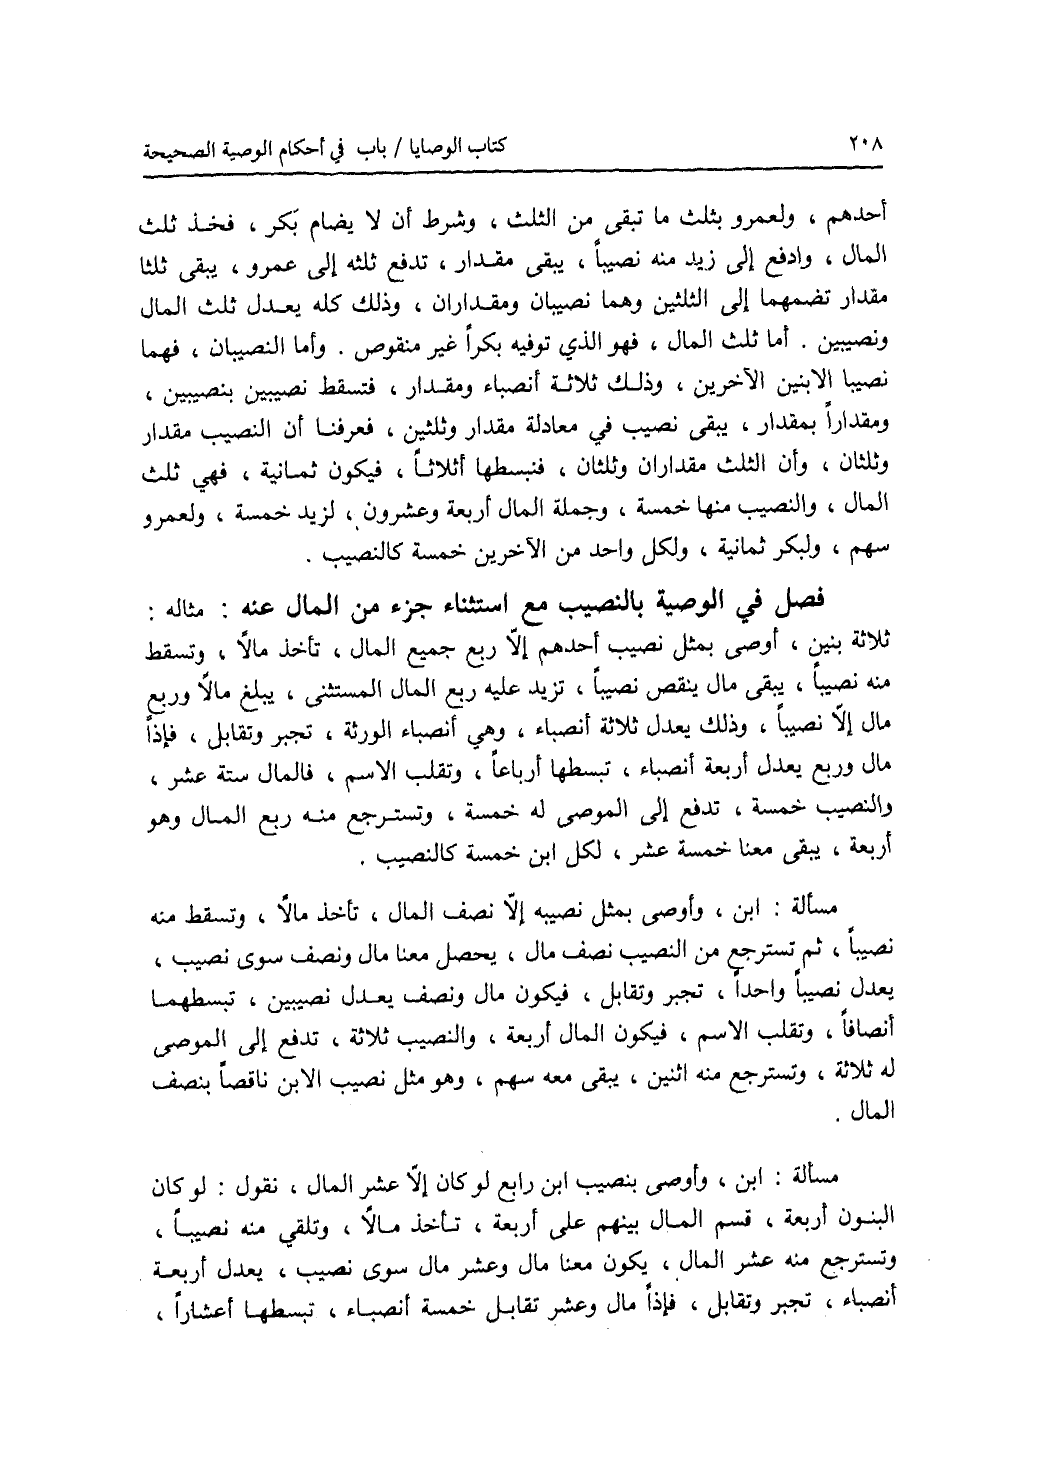 ٢٠٨ كتاب الوصايا / باب في أحكام الوصية الصحيحة
أحدهم ، ولعمرو بثلث ما تبقى من الثلث ، وشرط أن لا يضام بَكر ، فخذ ثلث
المال ، وادفع إلى زيد منه نصيباً ، يبقى مقدار ، تدفع ثلثه إلى عمرو ، يبقى ثلثا
مقدار تضمهما إلى الثلثين وهما نصيبان ومقداران ، وذلك كله يعدل ثلث المال
ونصيبين . أما ثلث المال ، فهو الذي توفيه بكراً غير منقوص . وأما النصيبان ، فهما
نصيبا الابنين الآخرين ، وذلك ثلاثة أنصباء ومقدار ، فتسقط نصيبين بنصيبين ،
ومقداراً بمقدار ، يبقى نصيب في معادلة مقدار وثلثين ، فعرفنا أن النصيب مقدار
وثلثان ، وأن الثلث مقداران وثلثان ، فنبسطها أثلاثاً ، فيكون ثمانية ، فهي ثلث
المال ، والنصيب منها خمسة ، وجملة المال أربعة وعشرون ، لزيد خمسة ، ولعمرو
سهم ، ولبكر ثمانية ، ولكل واحد من الآخرين خمسة كالنصيب .
فصل في الوصية بالنصيب مع استثناء جزء من المال عنه : مثاله :
ثلاثة بنين ، أوصى بمثل نصيب أحدهم إلّا ربع جميع المال ، تأخذ مالاً ، وتسقط
منه نصيباً ، يبقى مال ينقص نصيباً ، تزيد عليه ربع المال المستثنى ، يبلغ مالاً وربع
مال إلّا نصيباً ، وذلك يعدل ثلاثة أنصباء ، وهي أنصباء الورثة ، تجبر وتقابل ، فإذاً
مال وربع يعدل أربعة أنصباء ، تبسطها أرباعاً ، وتقلب الاسم ، فالمال ستة عشر ،
والنصيب خمسة ، تدفع إلى الموصى له خمسة ، وتسترجع منه ربع المال وهو
أربعة ، يبقى معنا خمسة عشر ، لكل ابن خمسة كالنصيب .
مسألة : ابن ، وأوصى بمثل نصيبه إلّا نصف المال ، تأخذ مالاً ، وتسقط منه
نصيباً ، ثم تسترجع من النصيب نصف مال ، يحصل معنا مال ونصف سوى نصيب ،
يعدل نصيباً واحداً ، تجبر وتقابل ، فيكون مال ونصف يعدل نصيبين ، تبسطهما
أنصافاً ، وتقلب الاسم ، فيكون المال أربعة ، والنصيب ثلاثة ، تدفع إلى الموصى
له ثلاثة ، وتسترجع منه اثنين ، يبقى معه سهم ، وهو مثل نصيب الابن ناقصاً بنصف
المال .
مسألة : ابن ، وأوصى بنصيب ابن رابع لو كان إلّا عشر المال ، نقول : لو كان
البنون أربعة ، قسم المال بينهم على أربعة ، تأخذ مالاً ، وتلقي منه نصيباً ،
وتسترجع منه عشر المال ، يكون معنا مال وعشر مال سوى نصيب ، يعدل أربعة
أنصباء ، تجبر وتقابل ، فإذاً مال وعشر تقابل خمسة أنصباء ، تبسطها أعشاراً ،